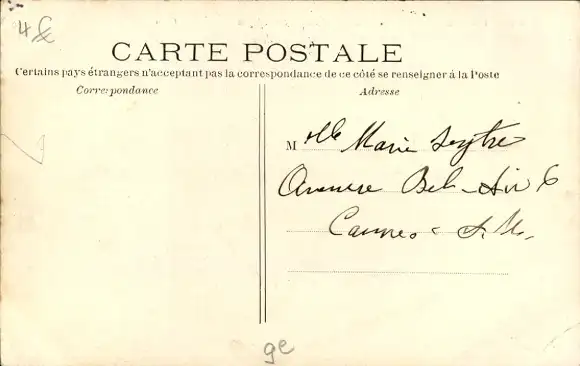 4£
CARTE POSTALE
Certains pays étrangers n'acceptant pas la correspondance de ce côté se renseigner à la Poste
Correspondance
Adresse
M lle Marie Seytre
Avenue Bel-Air 6
Cannes - A. M.
ge